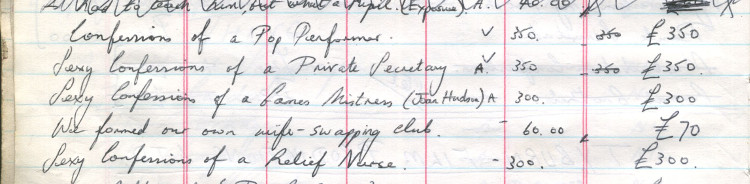 to teach him, but what a Pupil. (Exposure) A. ✓ 40.00
Confessions of a Pop Performer. ✓ 350. 350 £350
Sexy Confessions of a Private Secretary A. ✓ 350 350 £350.
Sexy Confessions of a Games Mistress (Joan Hudson) A 300. £300
We formed our own wife-swapping club. - 60.00 £70
Sexy Confessions of a Relief Nurse. - 300. £300.